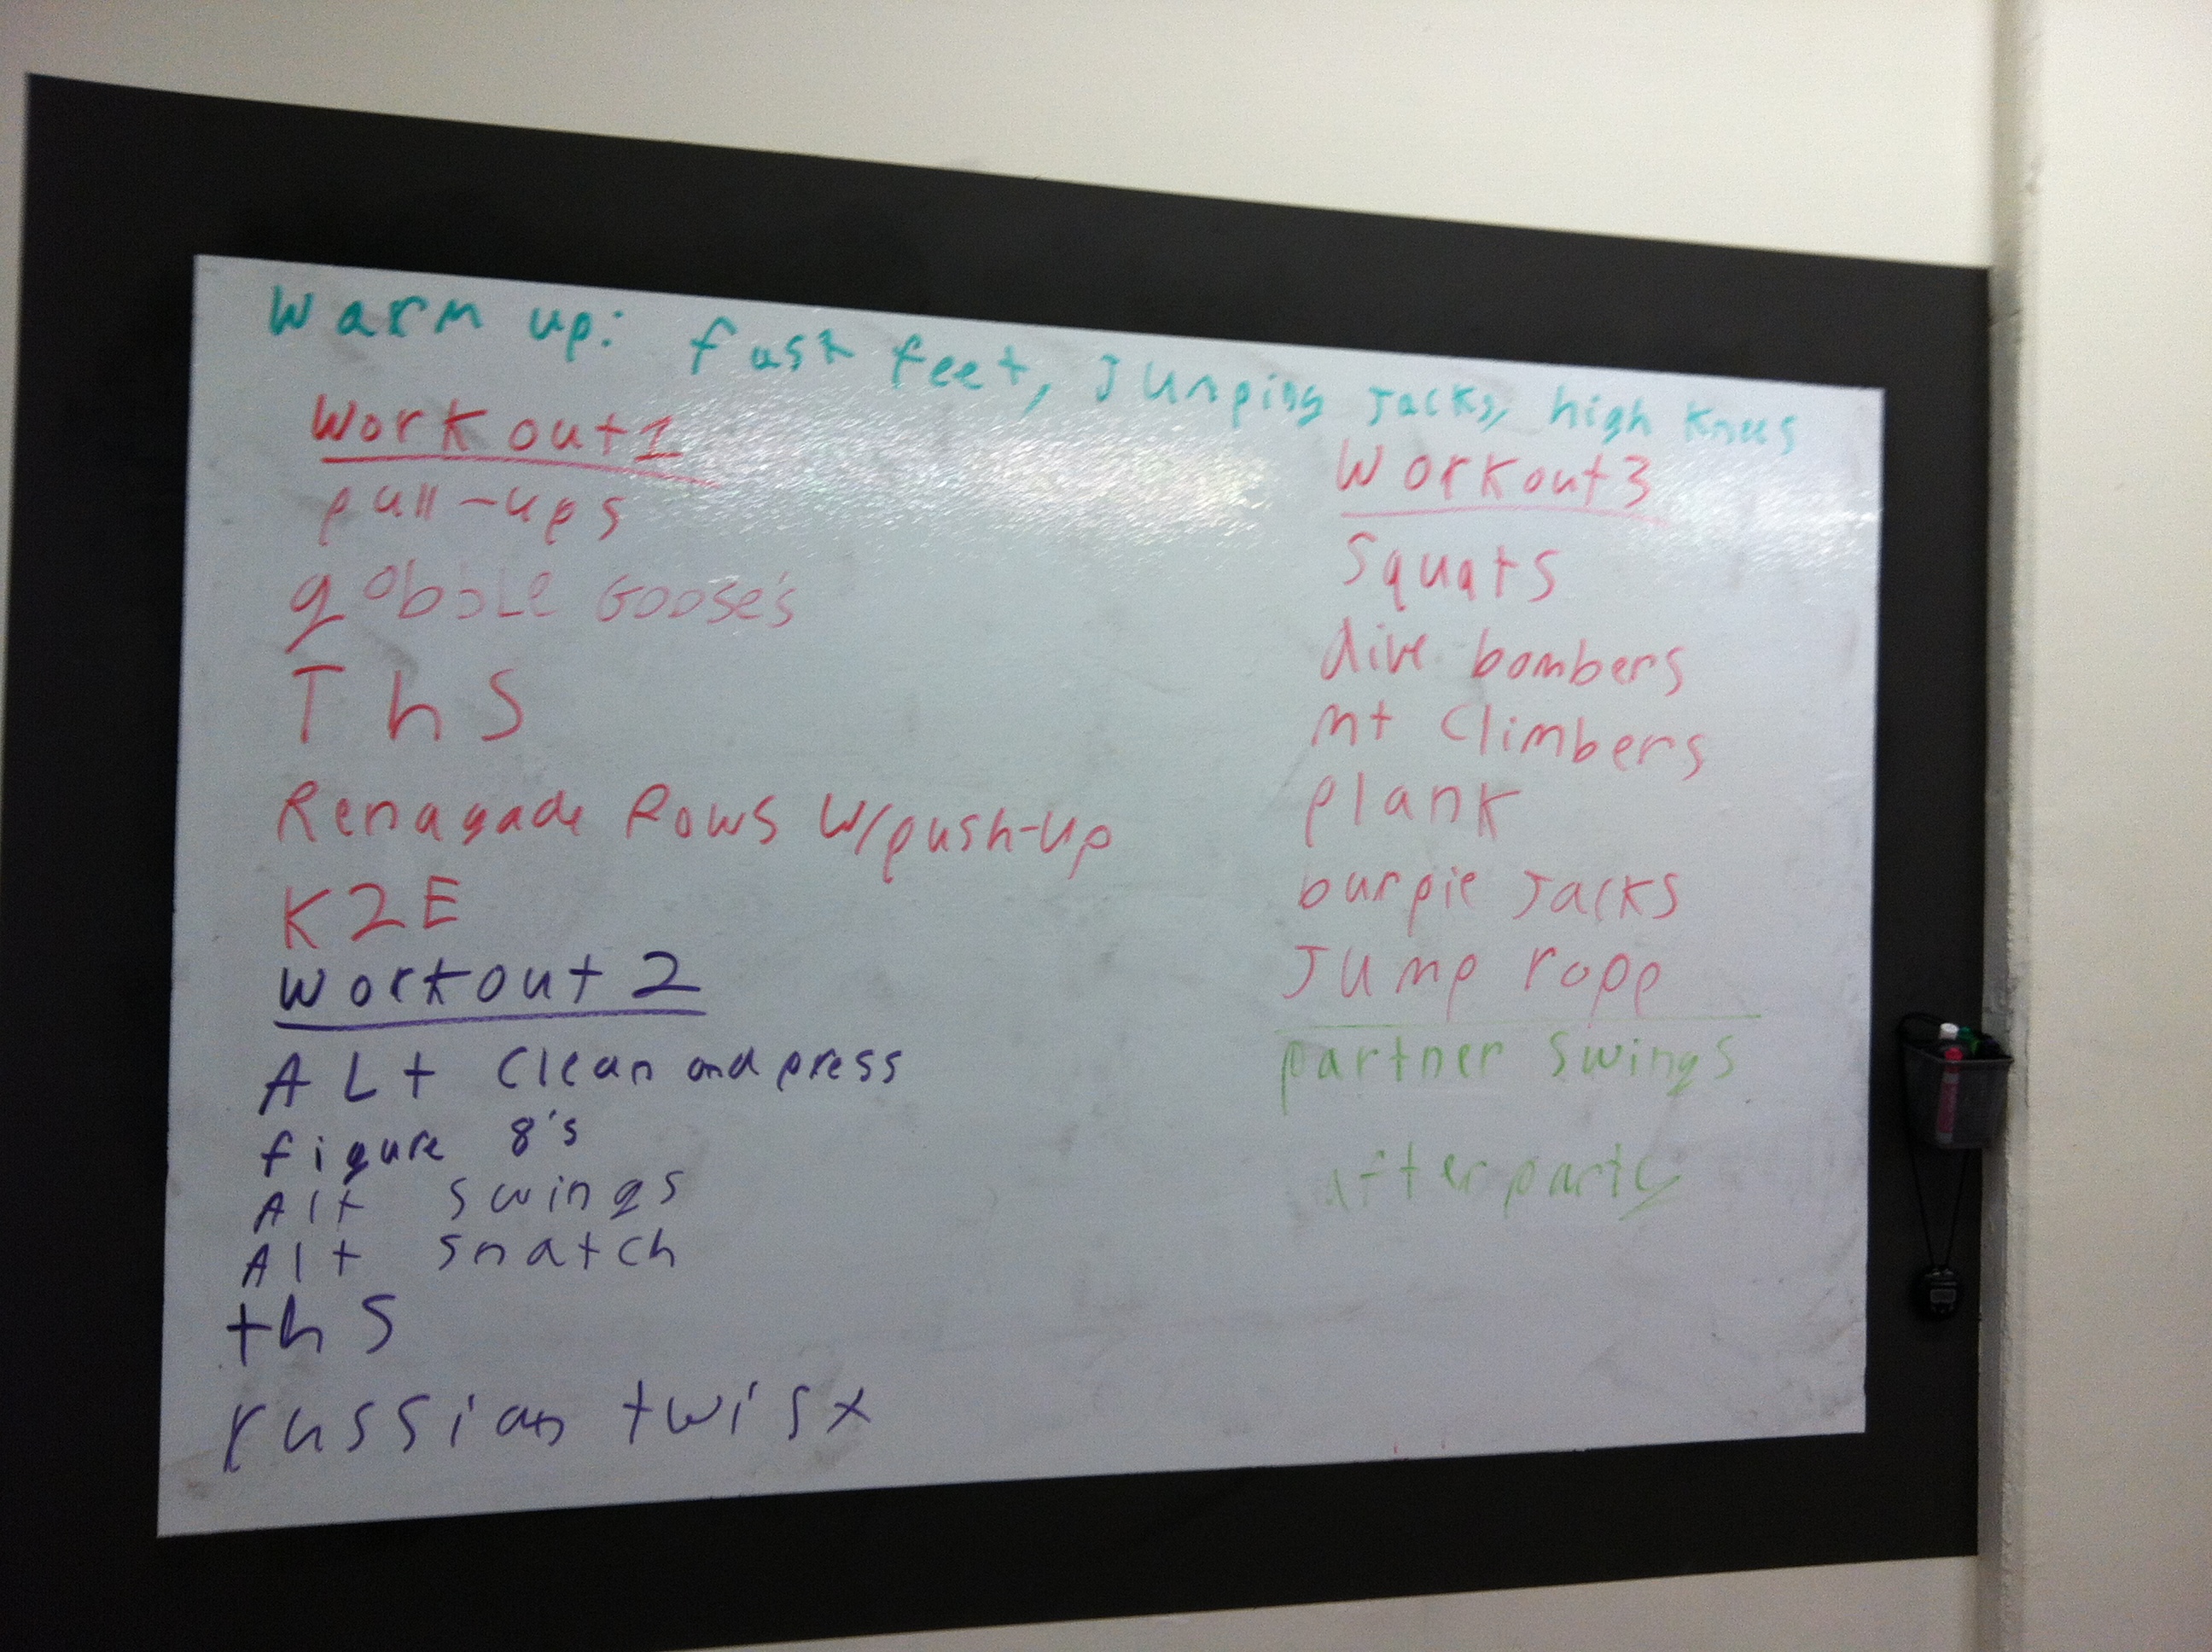 Warm up: fast feet, Jumping Jacks, high Knees
Workout 1
pull-ups
gobble Goose's
ThS
Renagade Rows W/push-up
K2E
Workout 2
ALt Clean and press
figure 8's
Alt swings
Alt snatch
thS
russian twist
Workout 3
Squats
dive bombers
mt Climbers
plank
burpie Jacks
Jump rope
partner Swings
after party